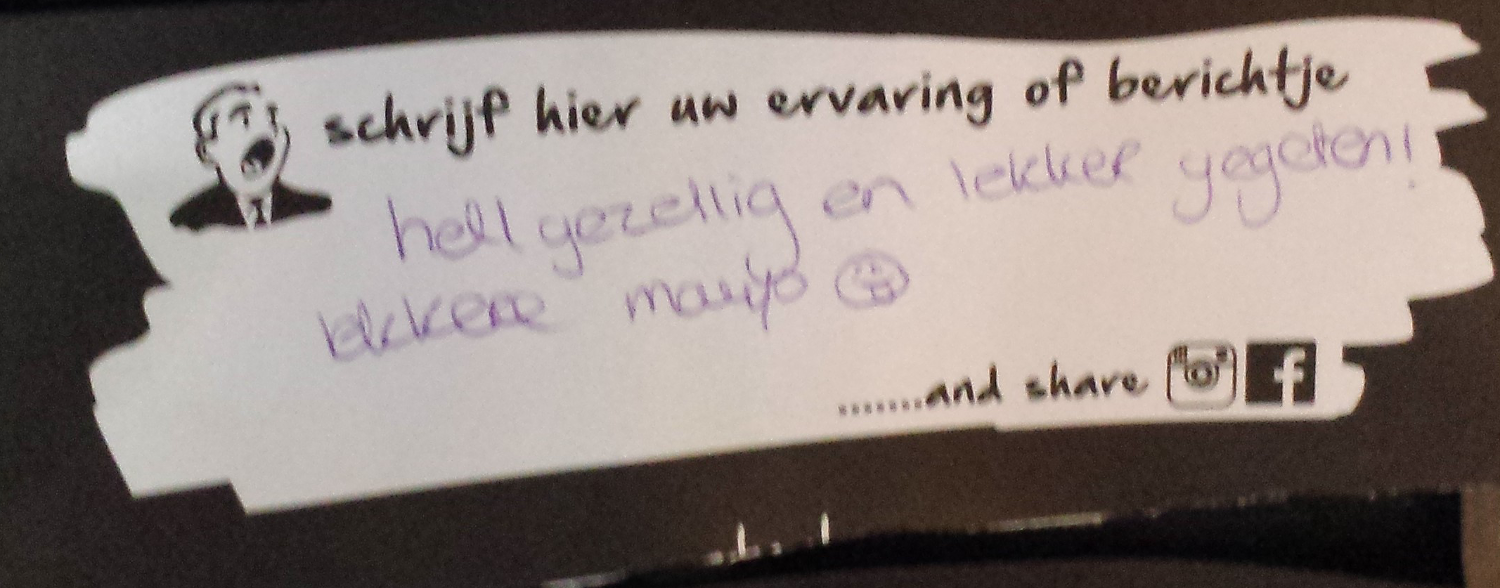 schrijf hier uw ervaring of berichtje
heel gezellig en lekker gegeten!
lekkere mayo
.......and share